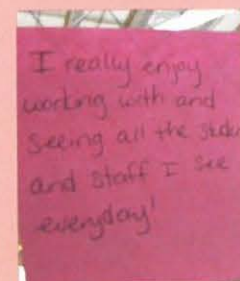 I really enjoy
working with and
seeing all the
and staff I see
everyday!